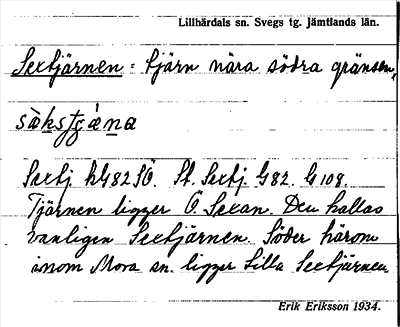 Lillhärdals sn. Svegs tg. Jämtlands län.
Sextjärnen = tjärn nära södra gränsen,
sàkstjæ̀na
Sextj. hG82SÖ. St. Sextj. G82. G108.
Tjärnen ligger Ö. Sexan. Den kallas
vanligen Sextjärnen. Söder härom
inom Mora sn. ligger Lilla Sextjärnen
Erik Eriksson 1934.